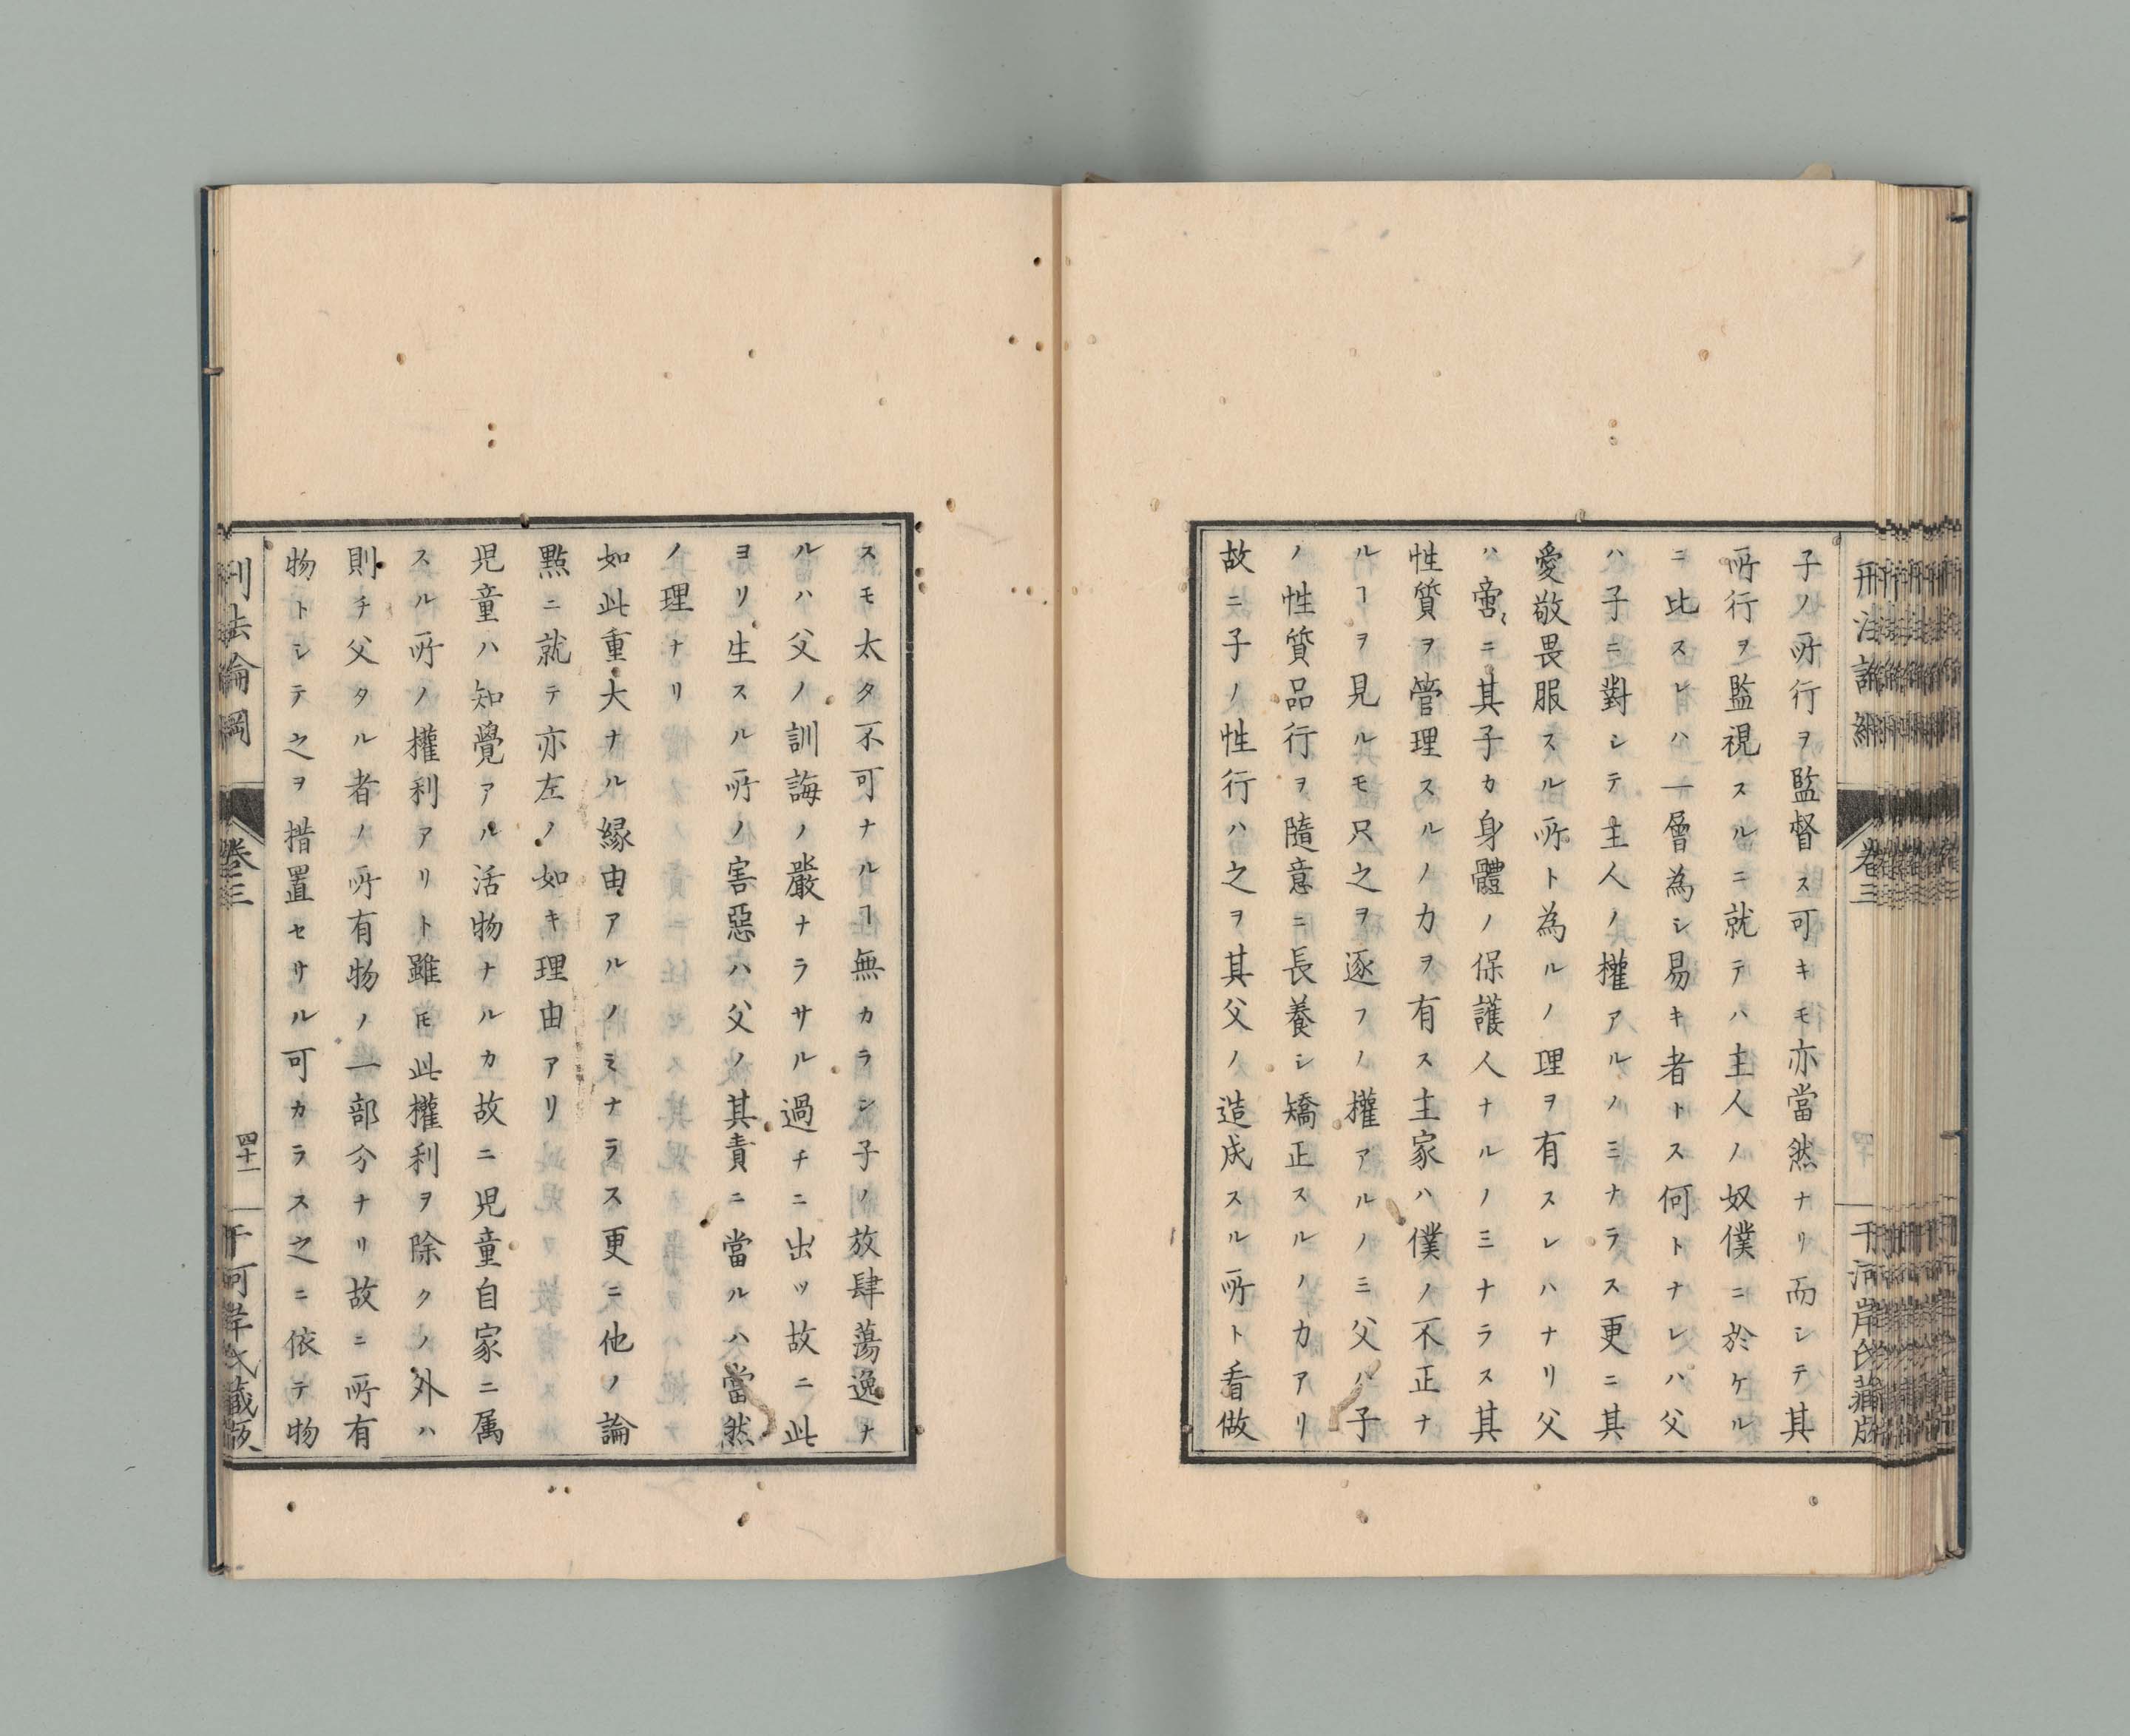 子ノ所行ヲ監督ス可キモ亦當然ナリ而シテ其
所行ヲ監視スルニ就テハ主人ノ奴僕ニ於ケル
ニ比スレハ一層為シ易キ者トス何トナレハ父
ハ子ニ對シテ主人ノ權アルノミナラス更ニ其
愛敬畏服スル所ト為ルノ理ヲ有スレハナリ父
ハ啻ニ其子カ身體ノ保護人ナルノミナラス其
性質ヲ管理スルノ力ヲ有ス主家ハ僕ノ不正ナ
ルヿヲ見ルモ只之ヲ逐フノ權アルノミ父ハ子
ノ性質品行ヲ隨意ニ長養シ矯正スルノ力アリ
故ニ子ノ性行ハ之ヲ其父ノ造成スル所ト看做
スモ太タ不可ナルヿ無カラン子ノ放肆蕩逸ナ
ルハ父ノ訓誨ノ嚴ナラサル過チニ出ツ故ニ此
ヨリ生スル所ノ害惡ハ父ノ其責ニ當ルハ當然
ノ理ナリ
如此重大ナル縁由アルノミナラス更ニ他ノ論
點ニ就テ亦左ノ如キ理由アリ
児童ハ知覺アル活物ナルカ故ニ児童自家ニ属
スル所ノ權利アリト雖𪜈此權利ヲ除クノ外ハ
則チ父タル者ノ所有物ノ一部分ナリ故ニ所有
物トシテ之ヲ措置セサル可カラス之ニ依テ物
刑法論綱
卷三
四十一
干河岸氏藏版